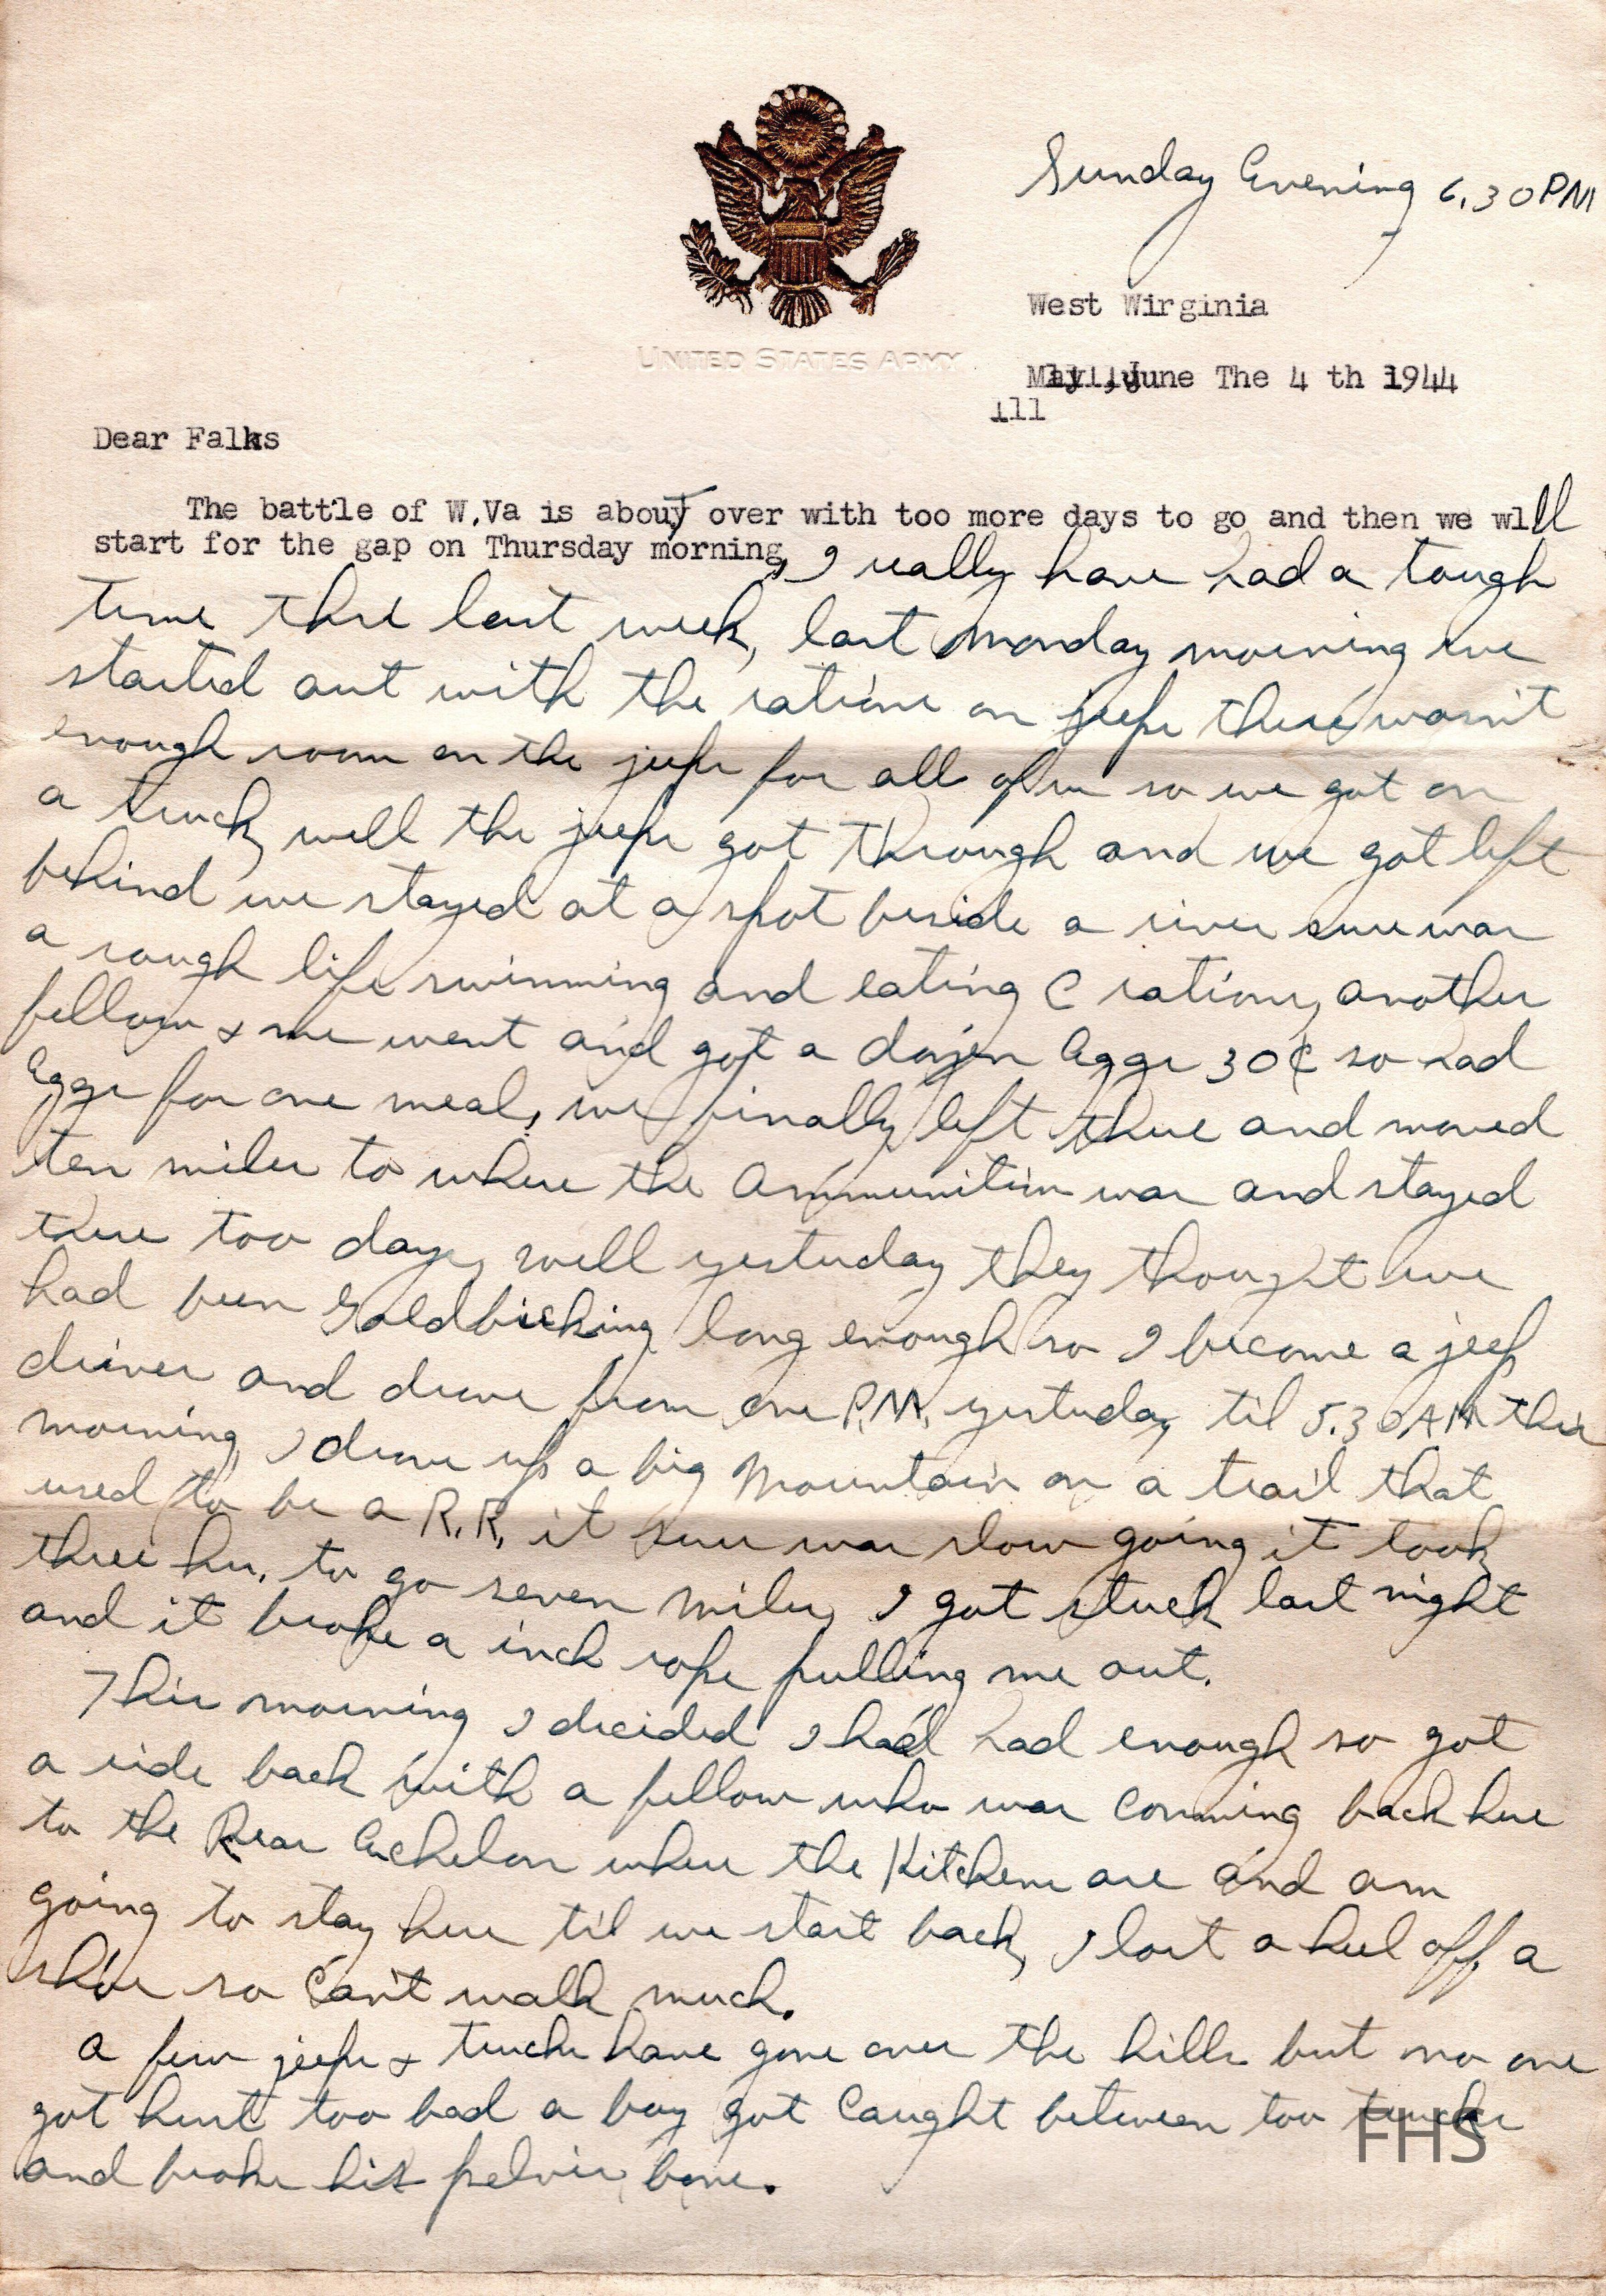 Sunday Evening 6.30 PM
UNITED STATES ARMY
West Wirginia
June The 4 th 1944
ill
Dear Falks
The battle of W.Va is about over with too more days to go and then we will
start for the gap on Thursday morning, I really have had a tough
time this last week, last Monday morning we
started out with the rations on jeeps there wasn't
enough room on the jeeps for all of us so we got on
a truck, well the jeeps got through and we got left
behind we stayed at a spot beside a river sure was
a rough life swimming and eating C rations, another
fellow & me went and got a dozen Eggs 30¢ so had
Eggs for one meal, we finally left there and moved
ten miles to where the Ammunition was and stayed
there too days, well yesterday they thought we
had been Goldbricking long enough so I become a jeep
driver and drove from one P.M. yesterday til 5.30 AM this
morning, I drove up a big Mountain on a trail that
used to be a R.R. it sure was slow going it took
three hrs. to go seven Miles, I got stuck last night
and it broke a inch rope pulling me out.
This morning I decided I had had enough so got
a ride back with a fellow who was Comming back here
to the Rear Echelon where the Kitchens are and am
going to stay here til we start back, I lost a heel off a
shoe so Can't walk much.
a few jeeps & trucks have gone over the hills but no one
got hurt too bad a boy got Caught between too trucks
and broke his pelvis bone.
FHS